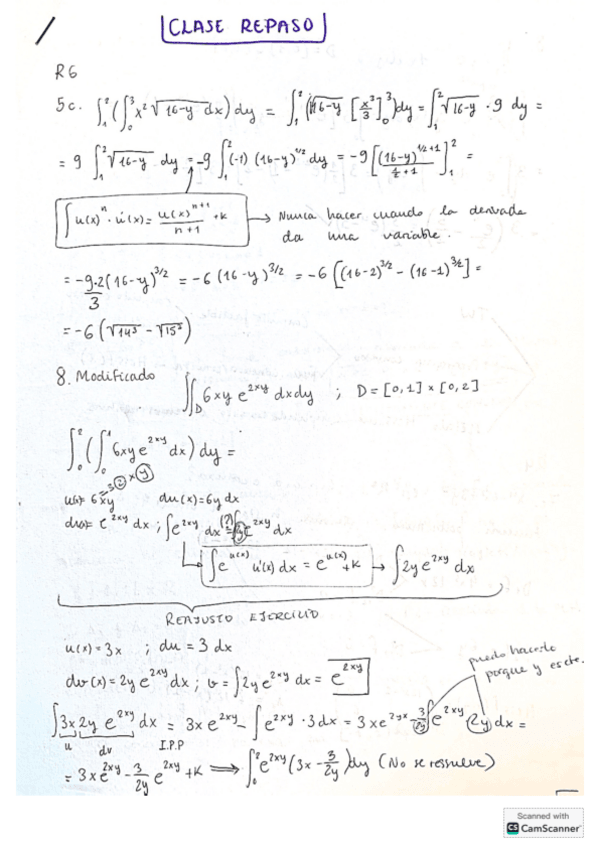 CLASE REPASO
R6
5c. ∫₁² (∫₀³ x² √(16-y) dx) dy = ∫₁² (√(16-y) [x³/3]₀³) dy = ∫₁² √(16-y) · 9 dy =
= 9 ∫₁² √(16-y) dy = -9 ∫₁² (-1) (16-y)^(1/2) dy = -9 [(16-y)^(1/2+1) / (1/2+1)]₁² =
∫ u(x)ⁿ · u'(x) = u(x)^(n+1) / (n+1) + K → Nunca hacer cuando la derivada
da una variable.
= -9·2/3 (16-y)^(3/2) = -6 (16-y)^(3/2) = -6 [(16-2)^(3/2) - (16-1)^(3/2)] =
= -6 (√14³ - √15³)
8. Modificado ∬_D 6xy e^(2xy) dxdy ; D = [0,1] × [0,2]
∫₀² (∫₀¹ 6xy e^(2xy) dx) dy =
3 · 2 · x · y
u(x)= 6xy du(x)=6y dx
dv(x)= e^(2xy) dx ; ∫ e^(2xy) dx (?) e^(2xy) dx
∫ e^(u(x)) u'(x) dx = e^(u(x)) + K → ∫ 2y e^(2xy) dx
REAJUSTO EJERCICIO
u(x) = 3x ; du = 3 dx
puedo hacerlo
porque y es cte.
dv(x) = 2y e^(2xy) dx ; v = ∫ 2y e^(2xy) dx = e^(2xy)
∫ 3x 2y e^(2xy) dx = 3x e^(2xy) - ∫ e^(2xy) · 3 dx = 3x e^(2yx) - 3/2y ∫ e^(2xy) 2y dx =
u dv I.P.P
= 3x e^(2xy) - 3/2y e^(2xy) + K ⟹ ∫₀² e^(2xy) (3x - 3/2y) dy (No se resuelve)
Scanned with
CS CamScanner